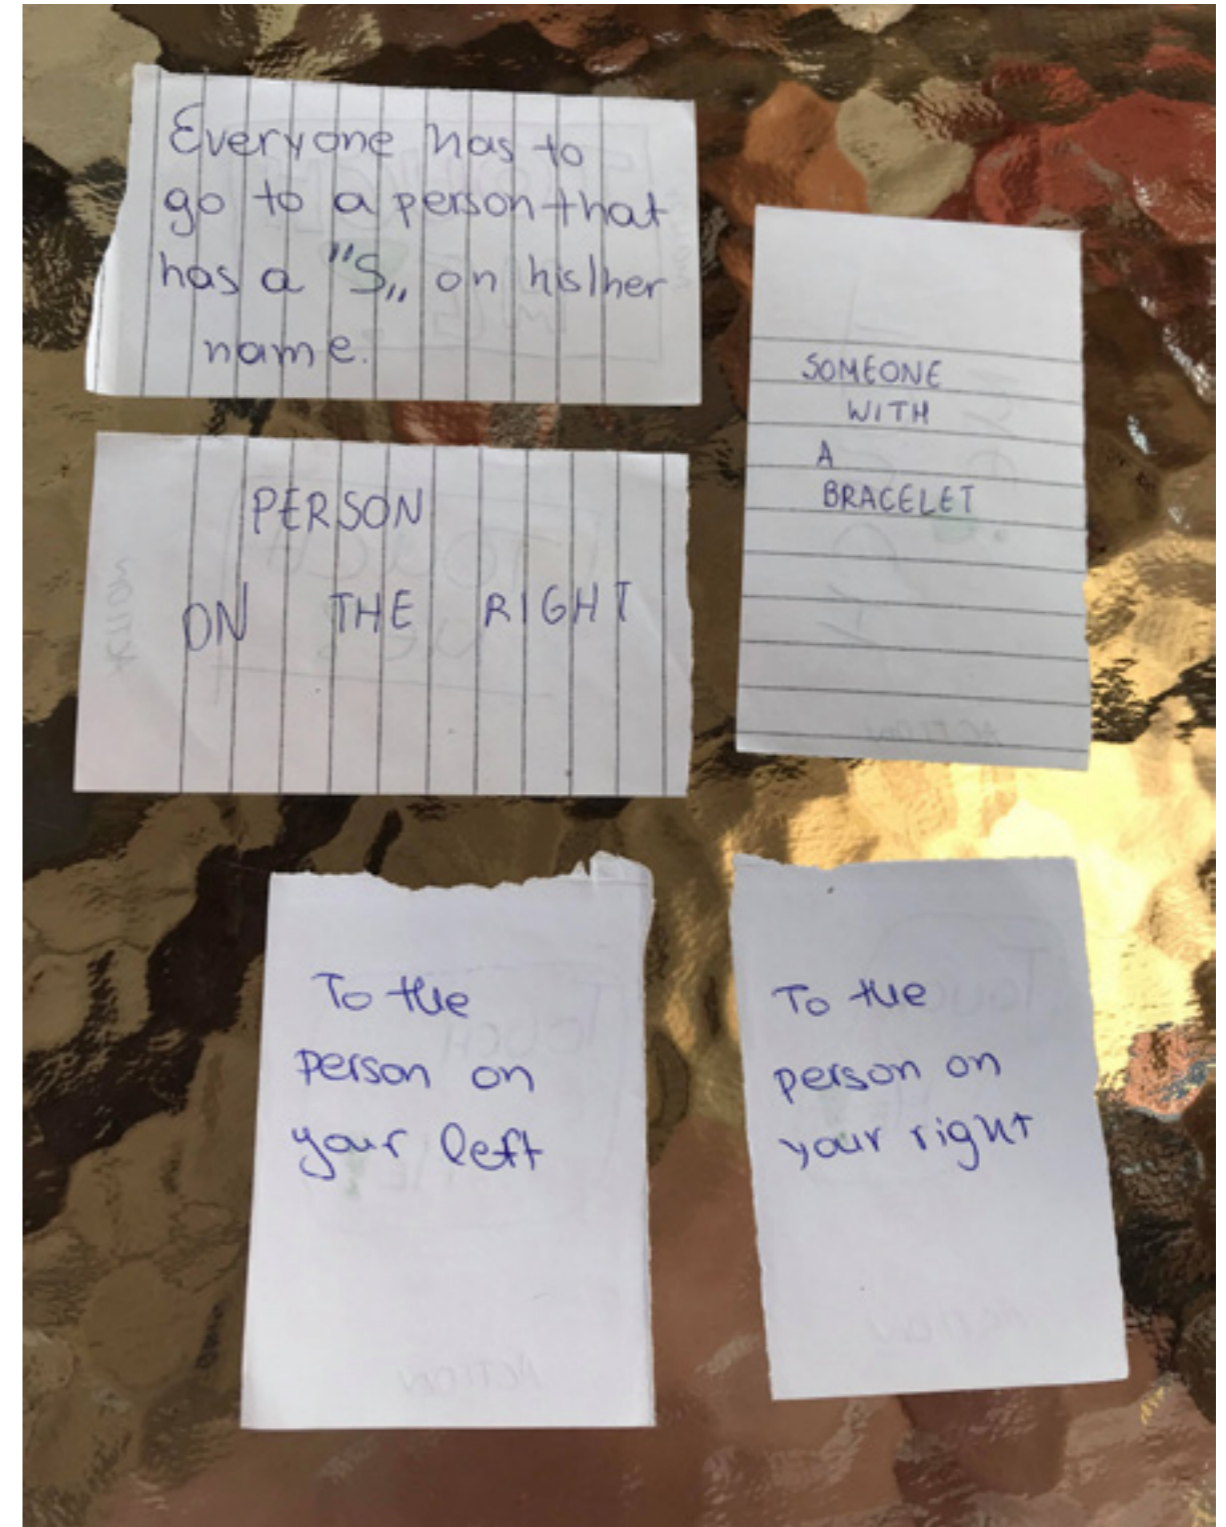 Everyone has to
go to a person that
has a "S„ on his/her
name.
SOMEONE
WITH
A
BRACELET
PERSON
ON THE RIGHT
To the
person on
your left
To the
person on
your right
ACTION
ACTION
ACTION
TOUCH